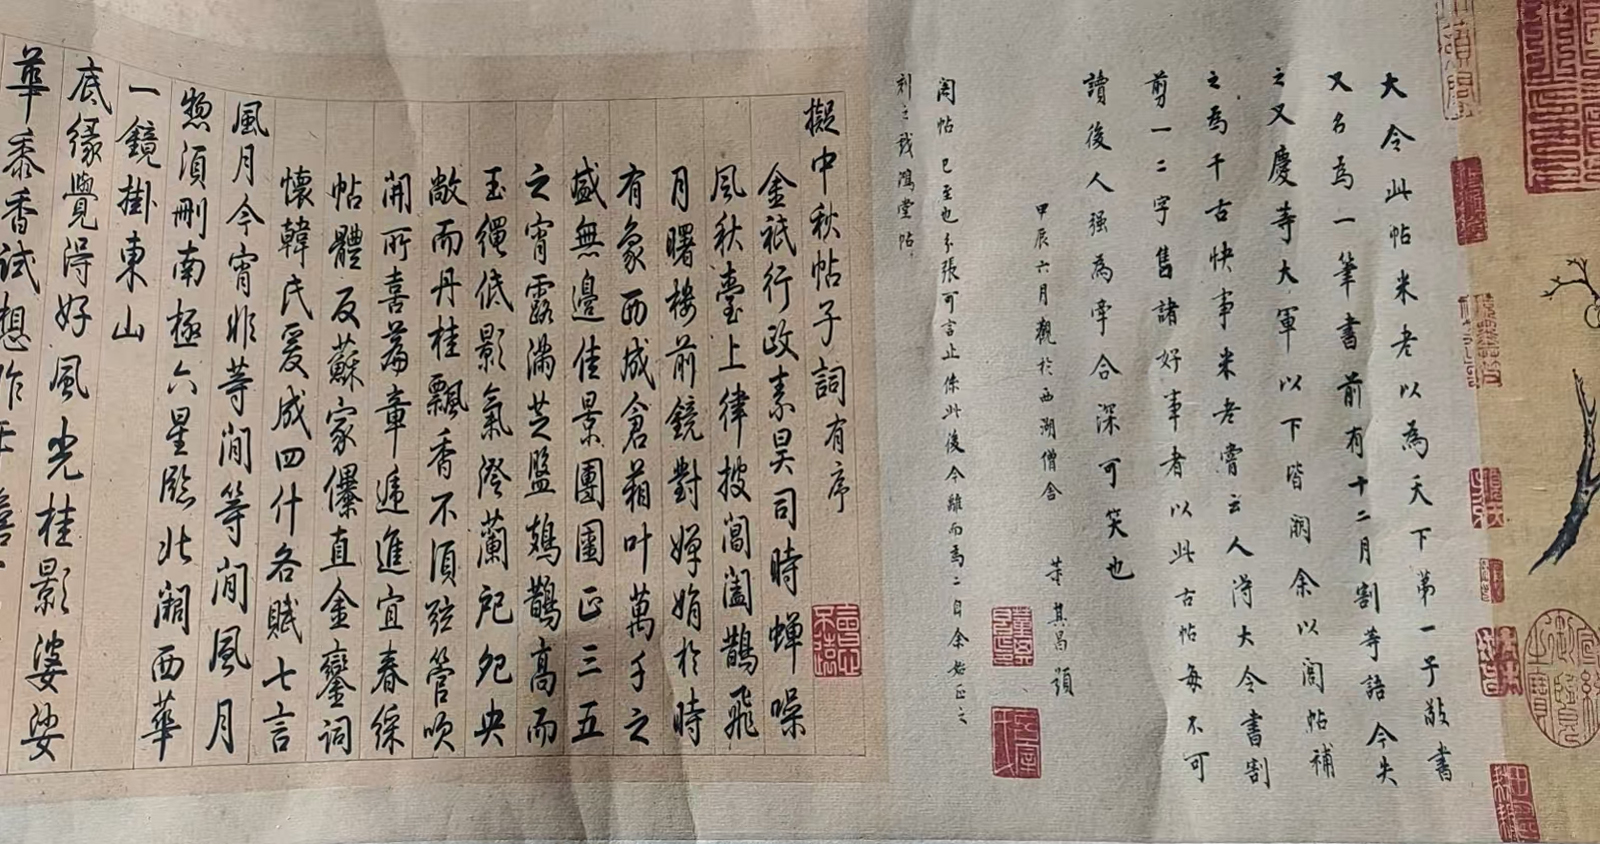 大令此帖米老以為天下第一子敬書
又名為一筆書前有十二月割等語今失
之又慶等大軍以下皆闕余以閣帖補
之為千古快事米老嘗云人得大令書割
剪一二字售諸好事者以此古帖每不可
讀後人强為牽合深可笑也
甲辰六月觀於西湖僧舍 董其昌題
閣帖 已至也分張可言止條此後今離而為二自余始正之
刻之戏鴻堂帖
擬中秋帖子詞有序
金祇行政素昊司時蟬噪
風秋臺上律披閶闔鵲飛
月曙樓前鏡對嬋娟於時
有象西成倉箱叶萬千之
盛無邊佳景團圞正三五
之宵露滿芝盤鳷鵲高而
玉繩低影氣澄蘭戺夗央
敞而丹桂飄香不須弦管吹
開所喜篇章遞進宜春綵
帖體反蘇家儤直金鑾詞
懷韓氏爰成四什各賦七言
風月今宵非等閒等閒風月
惣須刪南極六星臨北闕西華
一鏡掛東山
底緣覺得好風光桂影婆娑
華黍香試想作